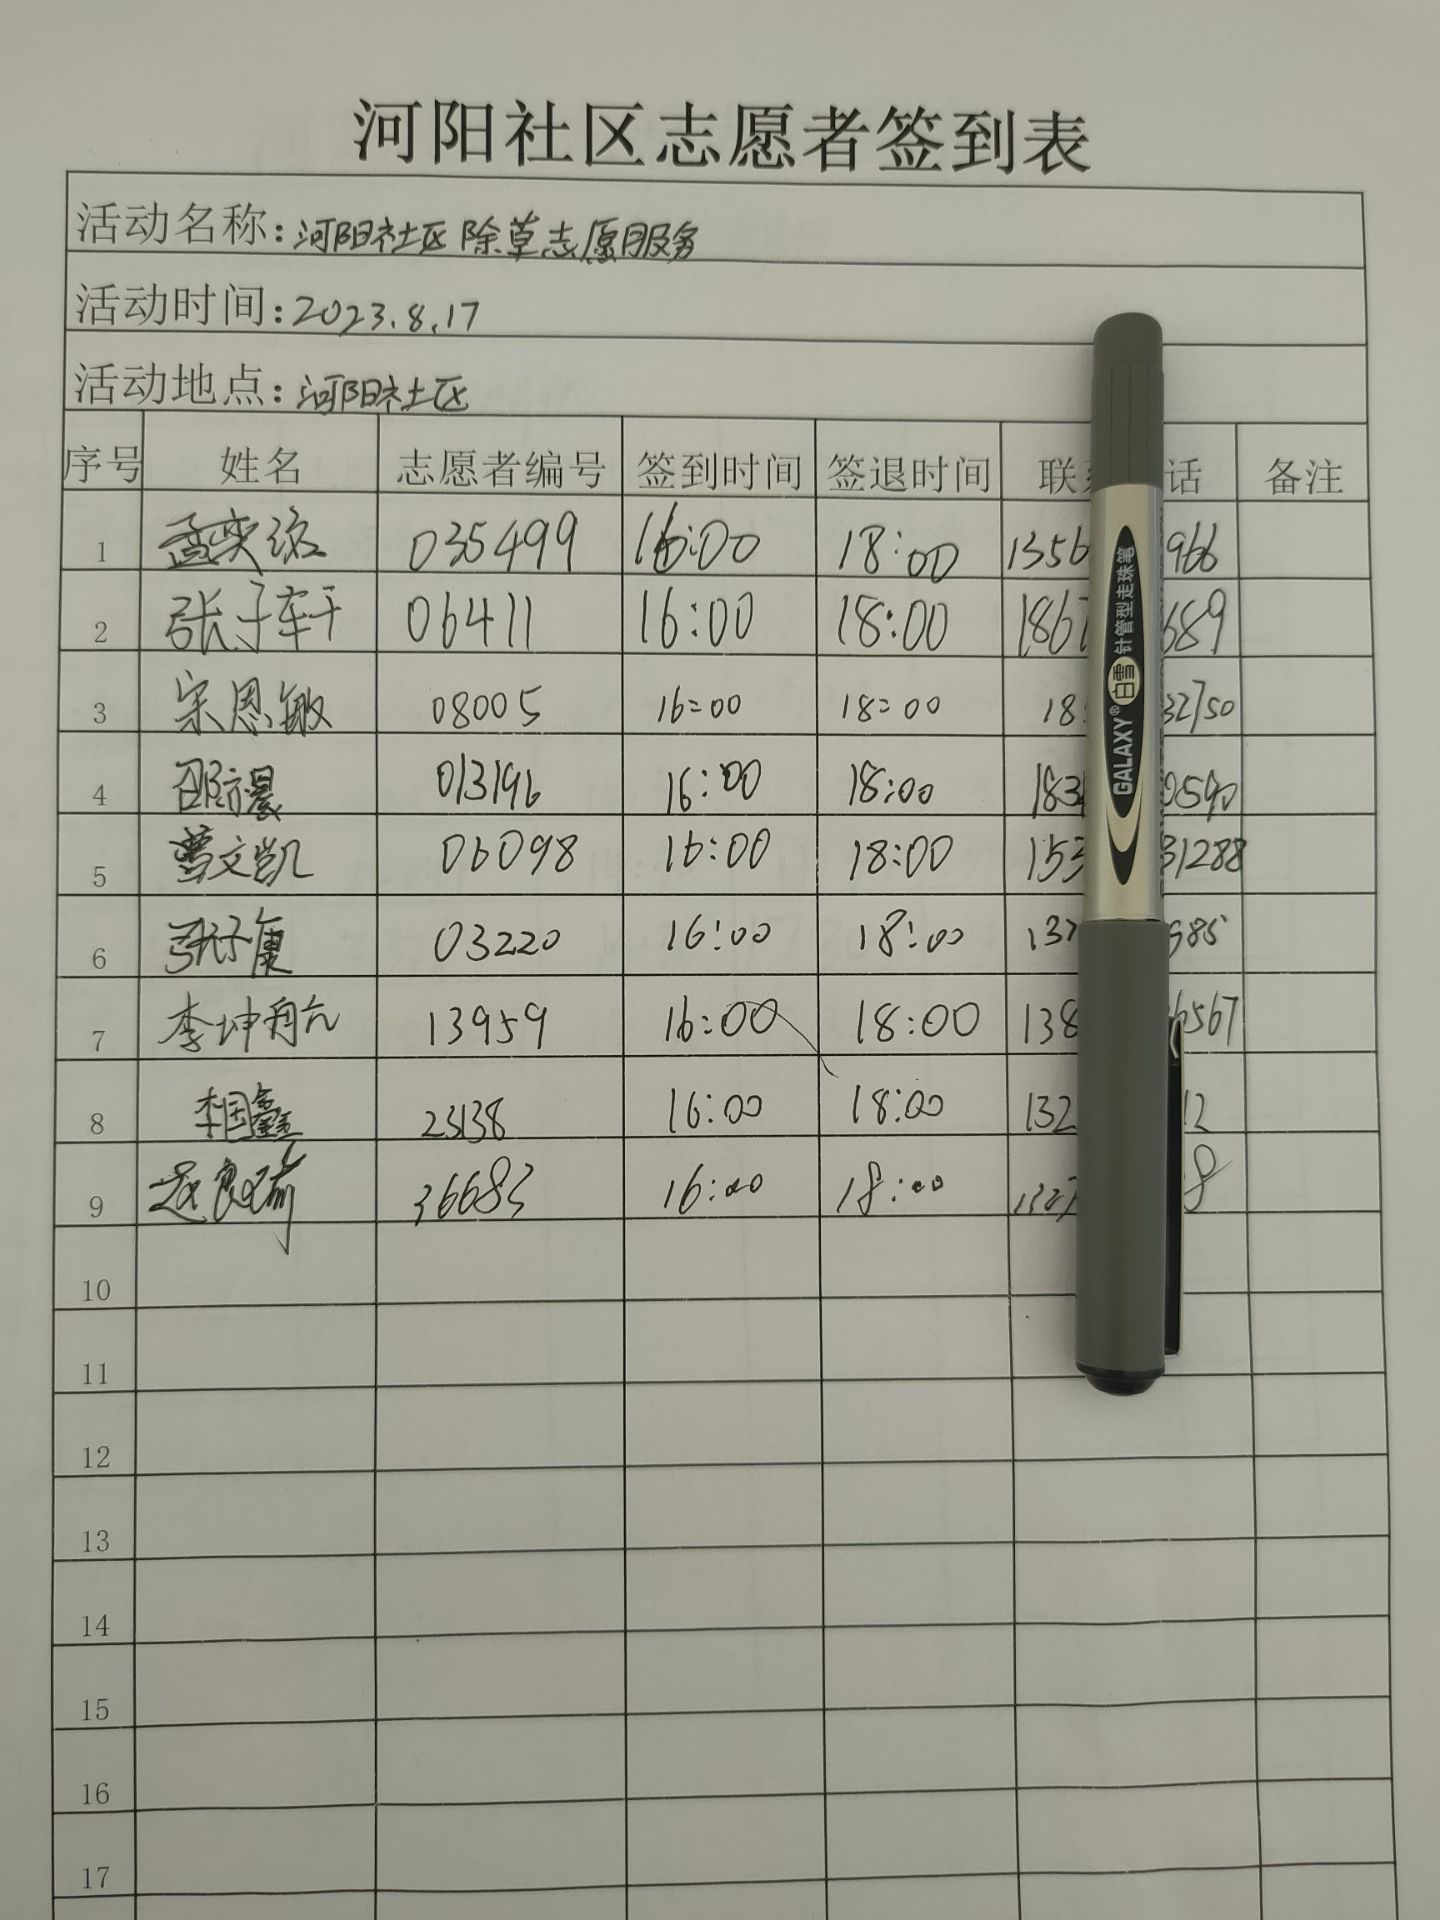 河阳社区志愿者签到表
活动名称:河阳社区除草志愿服务
活动时间:2023.8.17
活动地点:河阳社区
序号 姓名 志愿者编号 签到时间 签退时间 联 话 备注
1 孟奕 035499 16:00 18:00 1356 966
2 张子轩 06411 16:00 18:00 186 689
3 宋恩敏 08005 16:00 18:00 18 32750
4 邵方晨 013196 16:00 18:00 183 0590
5 曹文凯 06098 16:00 18:00 153 31288
6 03220 16:00 18:00 13 985
7 李坤航 13959 16:00 18:00 138 6567
8 李国鑫 23138 16:00 18:00 132 12
9 36683 16:00 18:00 132 8
10
11
12
13
14
15
16
17
GALAXY® 白雪 针管型走珠笔